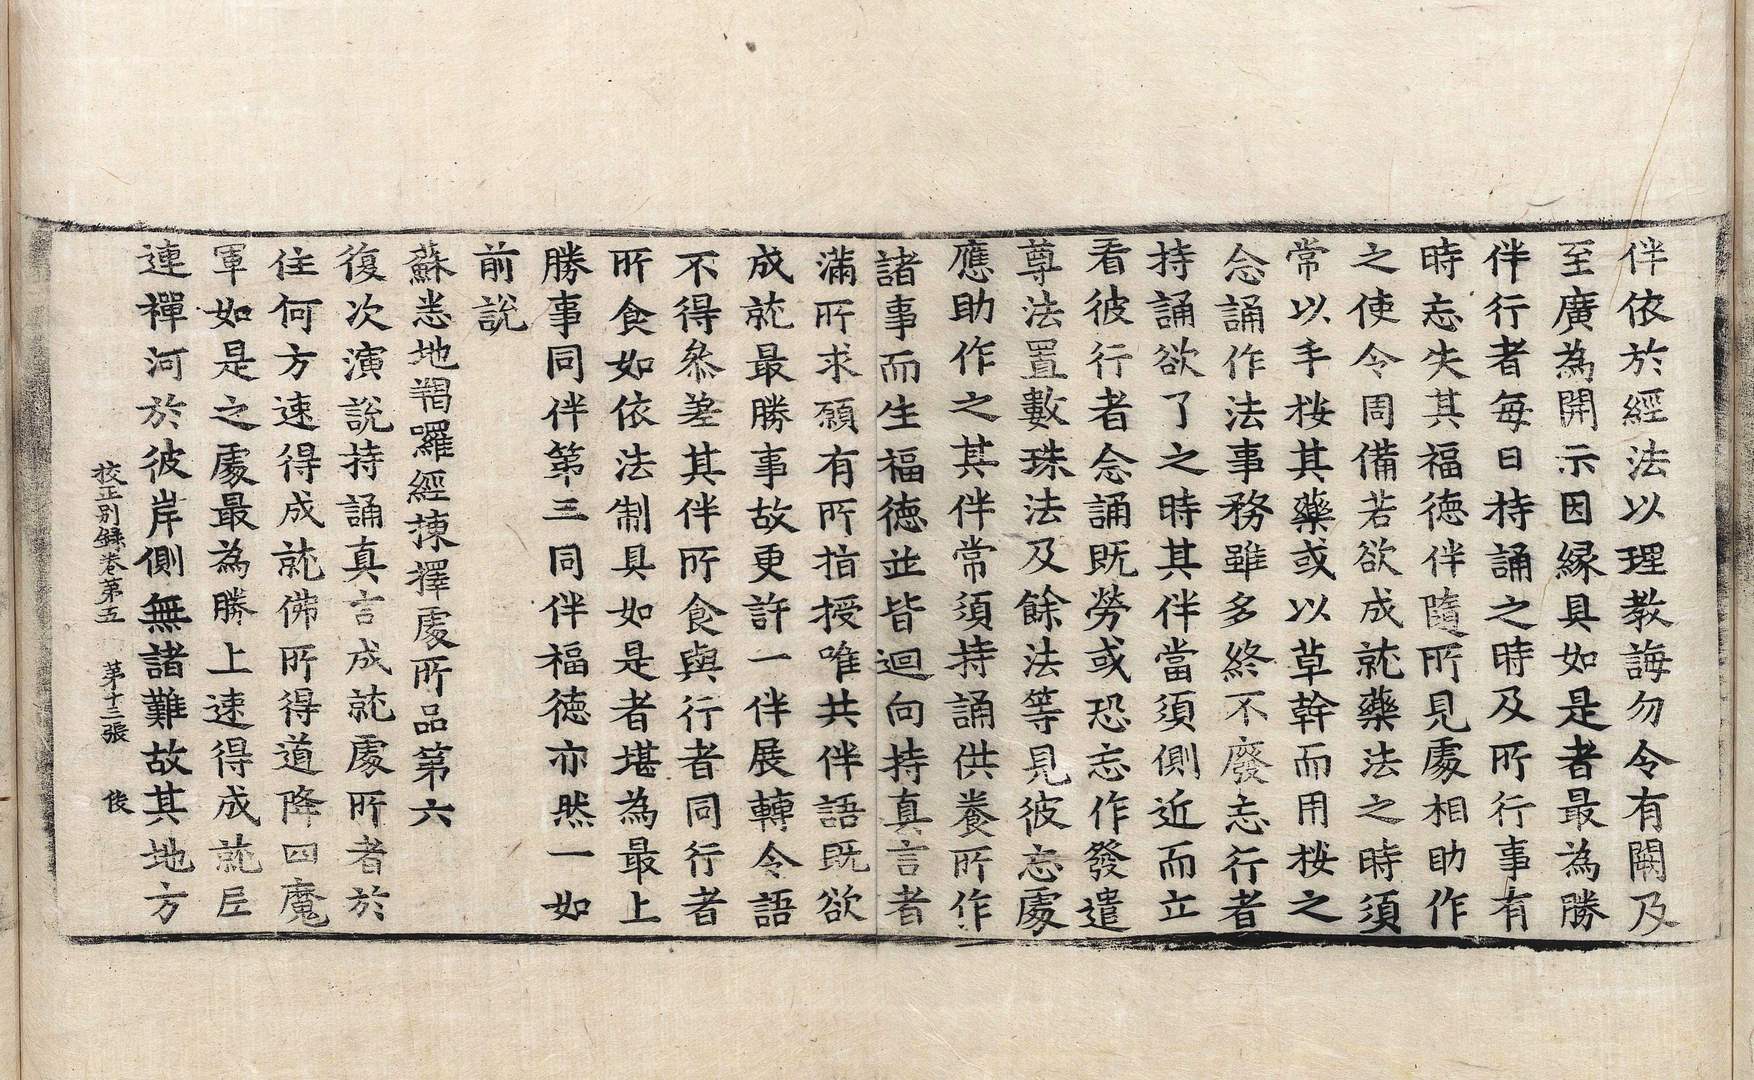 伴依於經法以理教誨勿令有闕及
至廣為開示因縁具如是者最為勝
伴行者每日持誦之時及所行事有
時忘失其福德伴隨所見處相助作
之使令周備若欲成就藥法之時須
常以手桉其藥或以草幹而用桉之
念誦作法事務雖多終不廢忘行者
持誦欲了之時其伴當須側近而立
看彼行者念誦既勞或恐忘作發遣
尊法置數珠法及餘法等見彼忘處
應助作之其伴常須持誦供養所作
諸事而生福徳並皆迴向持真言者
滿所求願有所指授唯共伴語既欲
成就最勝事故更許一伴展轉令語
不得叅差其伴所食與行者同行者
所食如依法制具如是者堪為最上
勝事同伴第三同伴福徳亦然一如
前說
蘇悉地羯囉經揀擇處所品第六
復次演說持誦真言成就處所者於
住何方速得成就佛所得道降四魔
軍如是之處最為勝上速得成就𡰱
連禪河於彼岸側無諸難故其地方
校正别錄卷第五 第十三張 俊